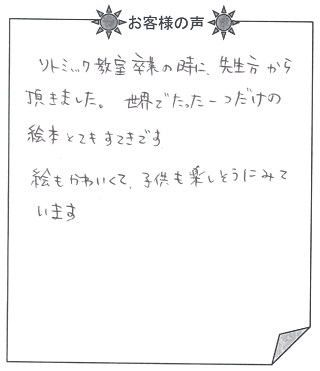 お客様の声
リトミック教室卒業の時に、先生方から
頂きました。 世界でたった一つだけの
絵本とてもすてきです
絵もかわいくて、子供も楽しそうにみて
います